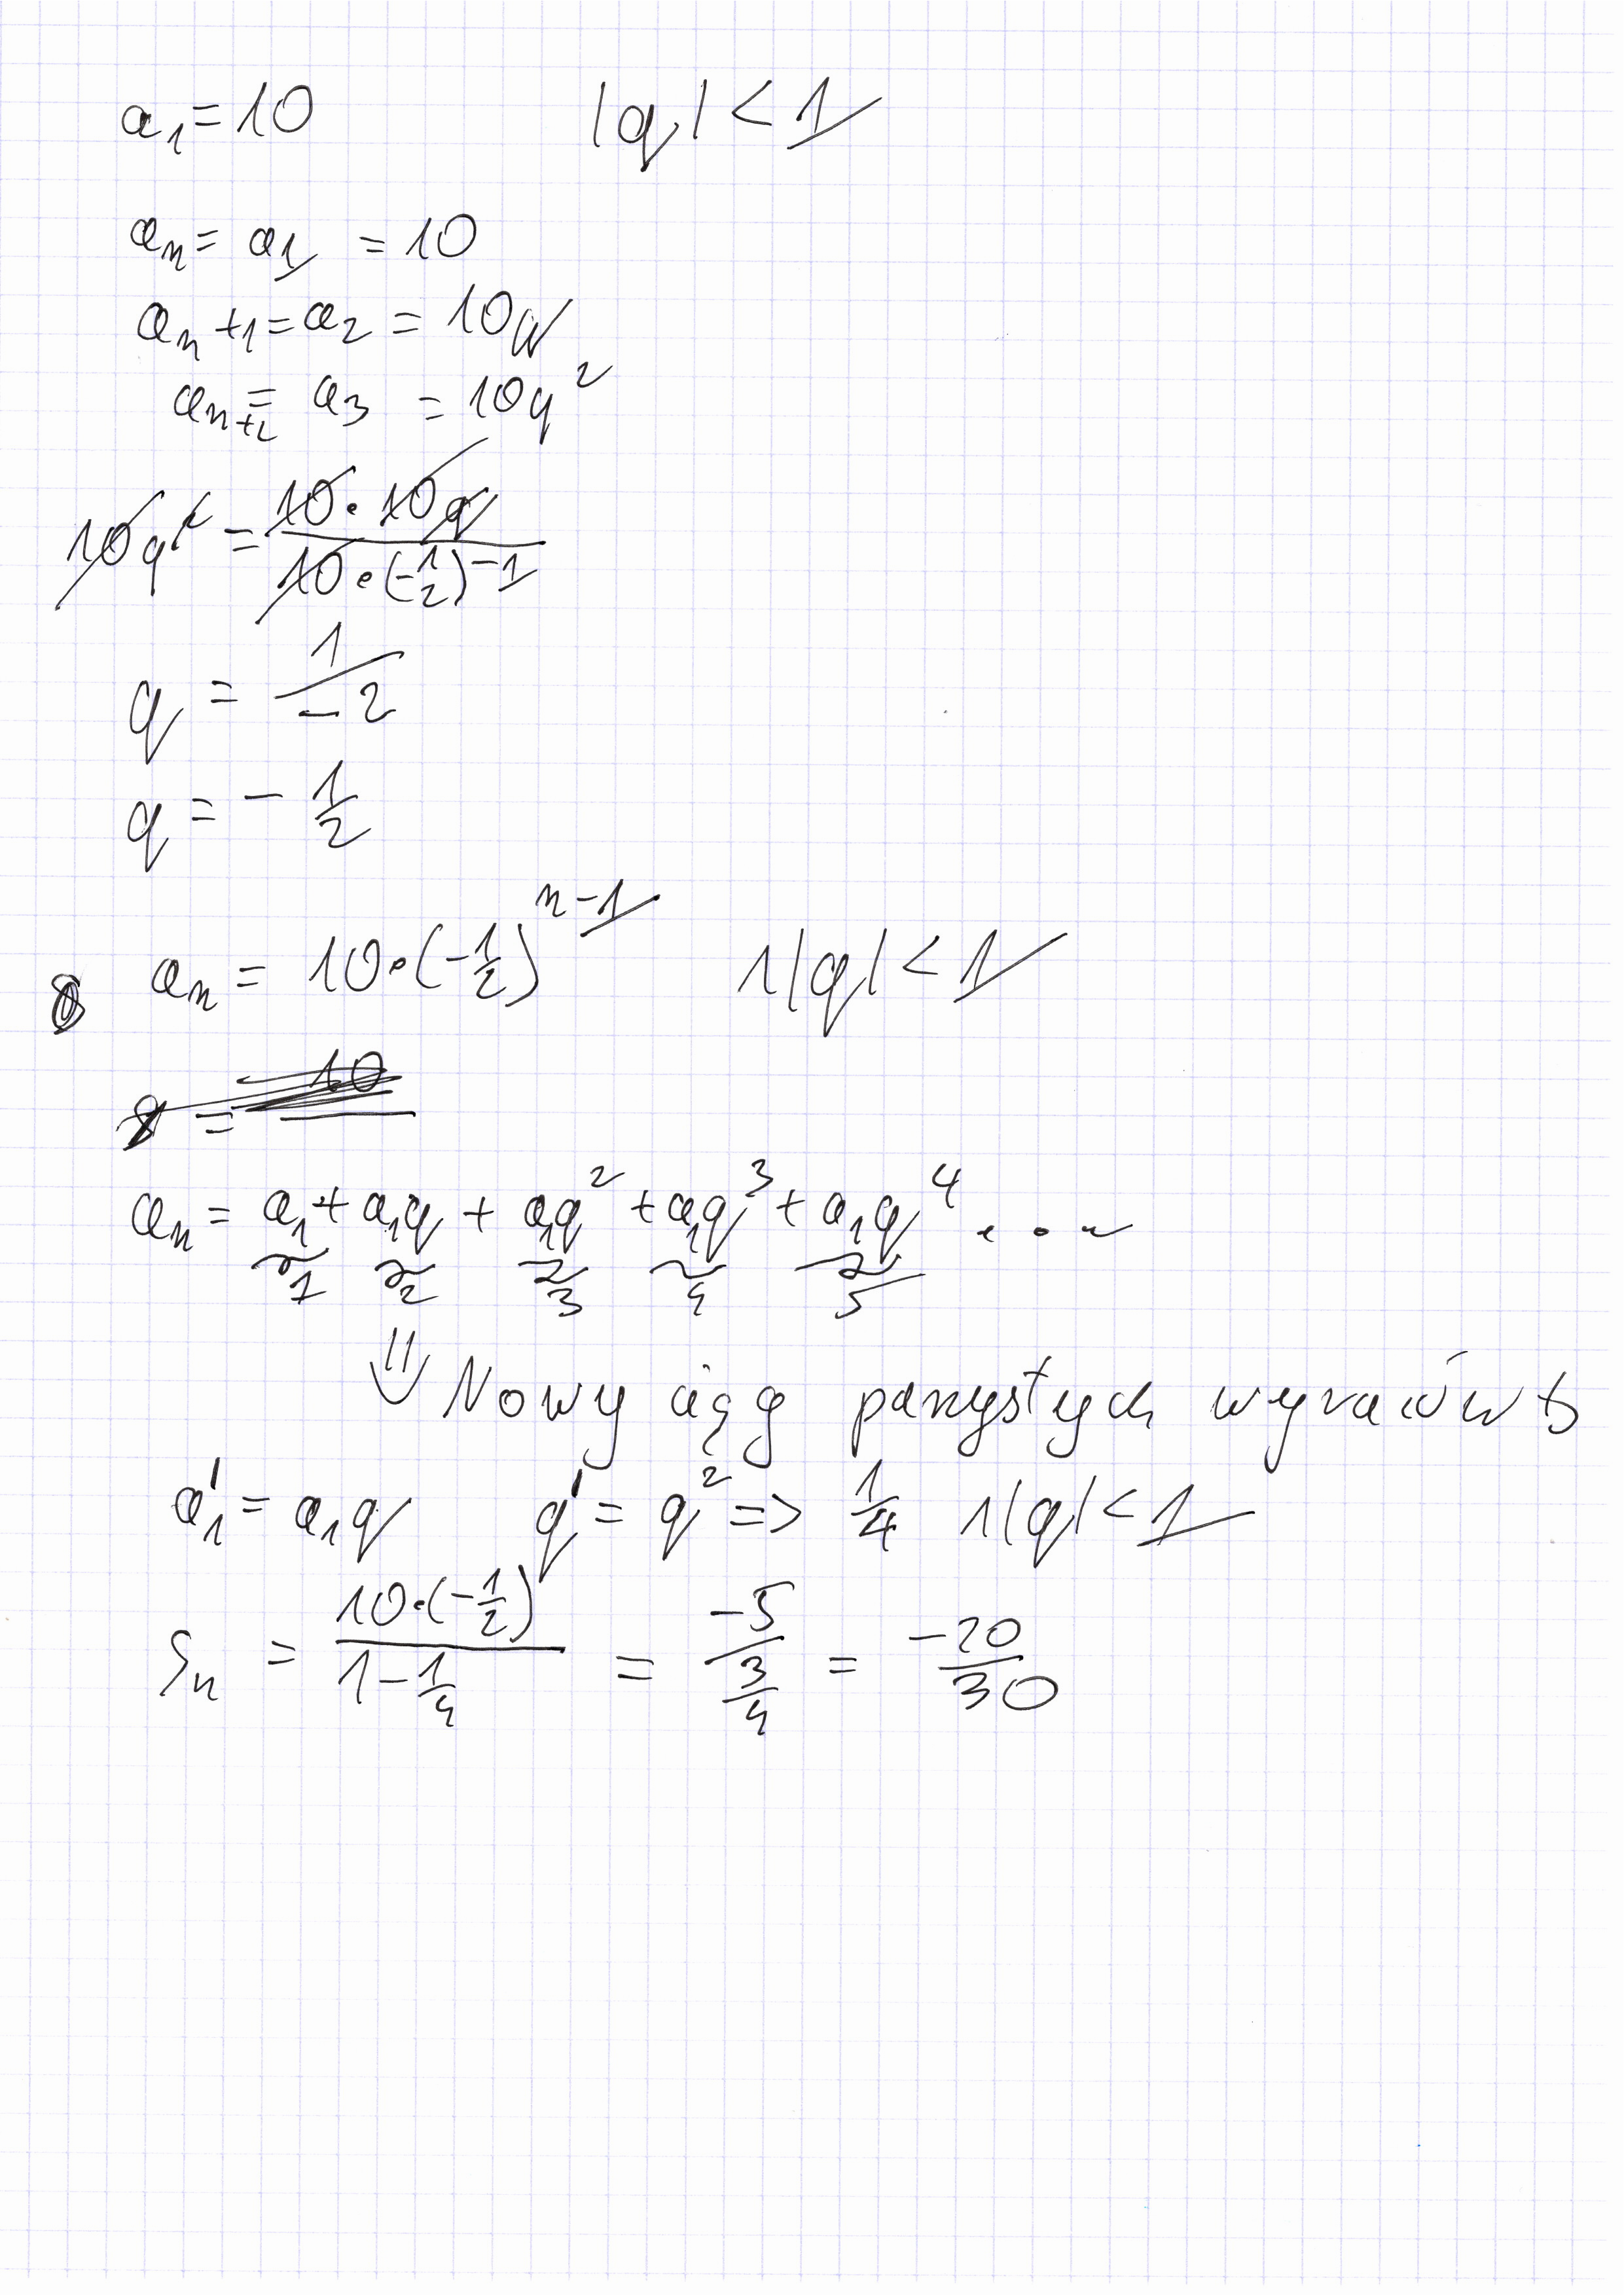 a₁ = 10 |q| < 1
aₙ = a₁ = 10
aₙ+1 = a₂ = 10q
aₙ₊₂ = a₃ = 10q²
10q² = (10 · 10q)/(10 · (-1/2)⁻¹)
q = 1/-2
q = - 1/2
aₙ = 10 · (-1/2)ⁿ⁻¹ 1|q| < 1
aₙ = a₁ + a₁q + a₁q² + a₁q³ + a₁q⁴ ...
1 2 3 4 5
⇓ Nowy ciąg parzystych wyrazów
a₁' = a₁q q' = q² => 1/4 1|q| < 1
Sₙ = (10 · (-1/2))/(1 - 1/4) = -5/(3/4) = -20/30